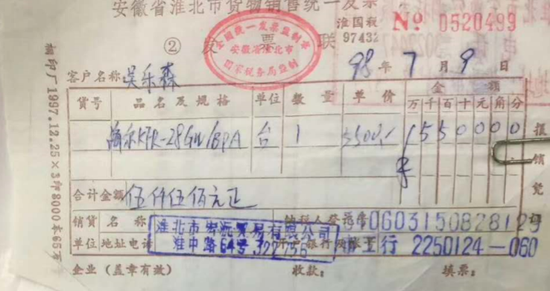 安徽省淮北市货物销售统一发票
淮国税
97432
№ 0520499
② 发票联
全国统一发票监制章
安徽省淮北市
国家税务局监制
98年7月9日
客户名称 吴乐森
货号 品名及规格 单位 数量 单价 金额
万千百十元角分
海尔KFR-28GW/BPA 台 1 5500.- 550000
合计金额 伍仟伍佰元正
销货单位 名称 纳税人登记号 060315082812
地址电话 淮中路64号 322756 工行 2250124-060
淮北市宏远贸易有限公司
企业(盖章有效) 收款: 填票:
报销凭
印厂1997.12.25×3印8000本65